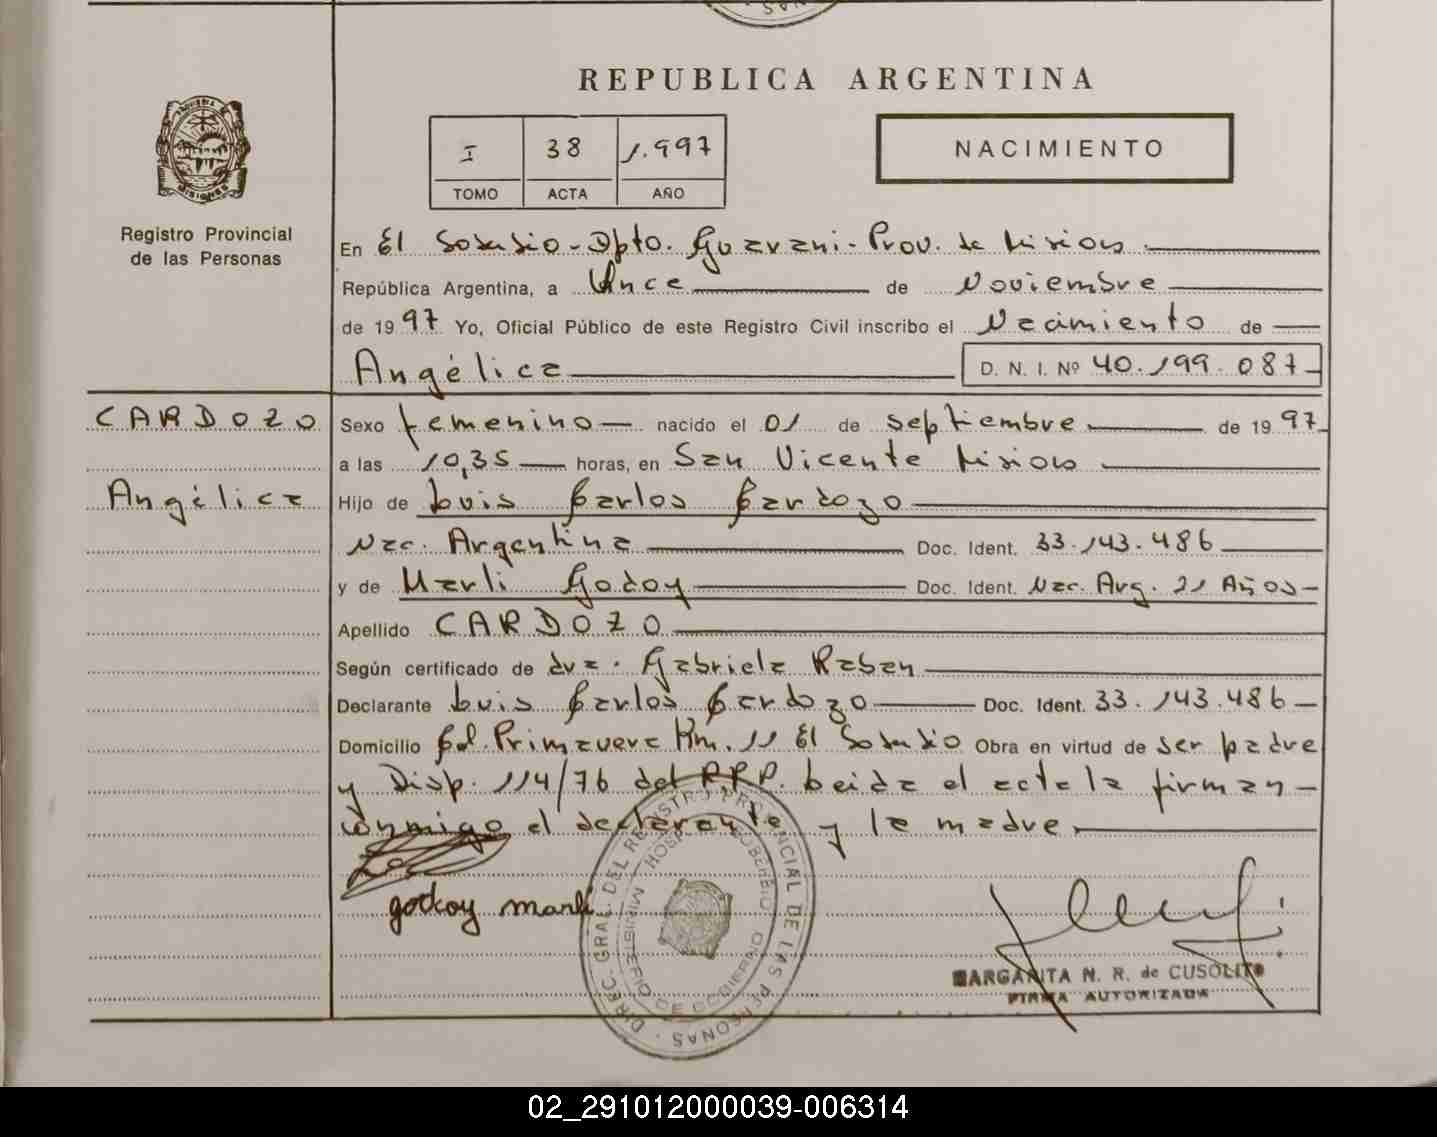 REPUBLICA ARGENTINA
I 38 1.997
TOMO ACTA AÑO
NACIMIENTO
Registro Provincial
de las Personas
En El Soberbio - Dpto. Guarani - Prov. de Misiones
República Argentina, a Once de Noviembre
de 1997 Yo, Oficial Público de este Registro Civil inscribo el Nacimiento de
Angélica D. N. I. Nº 40.199.087
CARDOZO
Angélica
Sexo femenino nacido el 01 de septiembre de 1997
a las 10,35 horas, en San Vicente Misiones
Hijo de Luis Carlos Cardozo
Nac. Argentina Doc. Ident. 33.143.486
y de Marli Godoy Doc. Ident. Nac. Arg. 21 Años
Apellido CARDOZO
Según certificado de dra. Gabriela Raban
Declarante Luis Carlos Cardozo Doc. Ident. 33.143.486
Domicilio Col. Primavera Km. 11 El Soberbio Obra en virtud de ser padre
y Disp. 114/76 del R.R.P. Leida el acta la firman
conmigo el declarante y la madre.
godoy marli
DIREC. GRAL. DEL REGISTRO PROVINCIAL DE LAS PERSONAS
HOSP. SOBERBIO
MINISTERIO DE GOBIERNO
MARGARITA N. R. de CUSOLITO
FIRMA AUTORIZADA
02_291012000039-006314